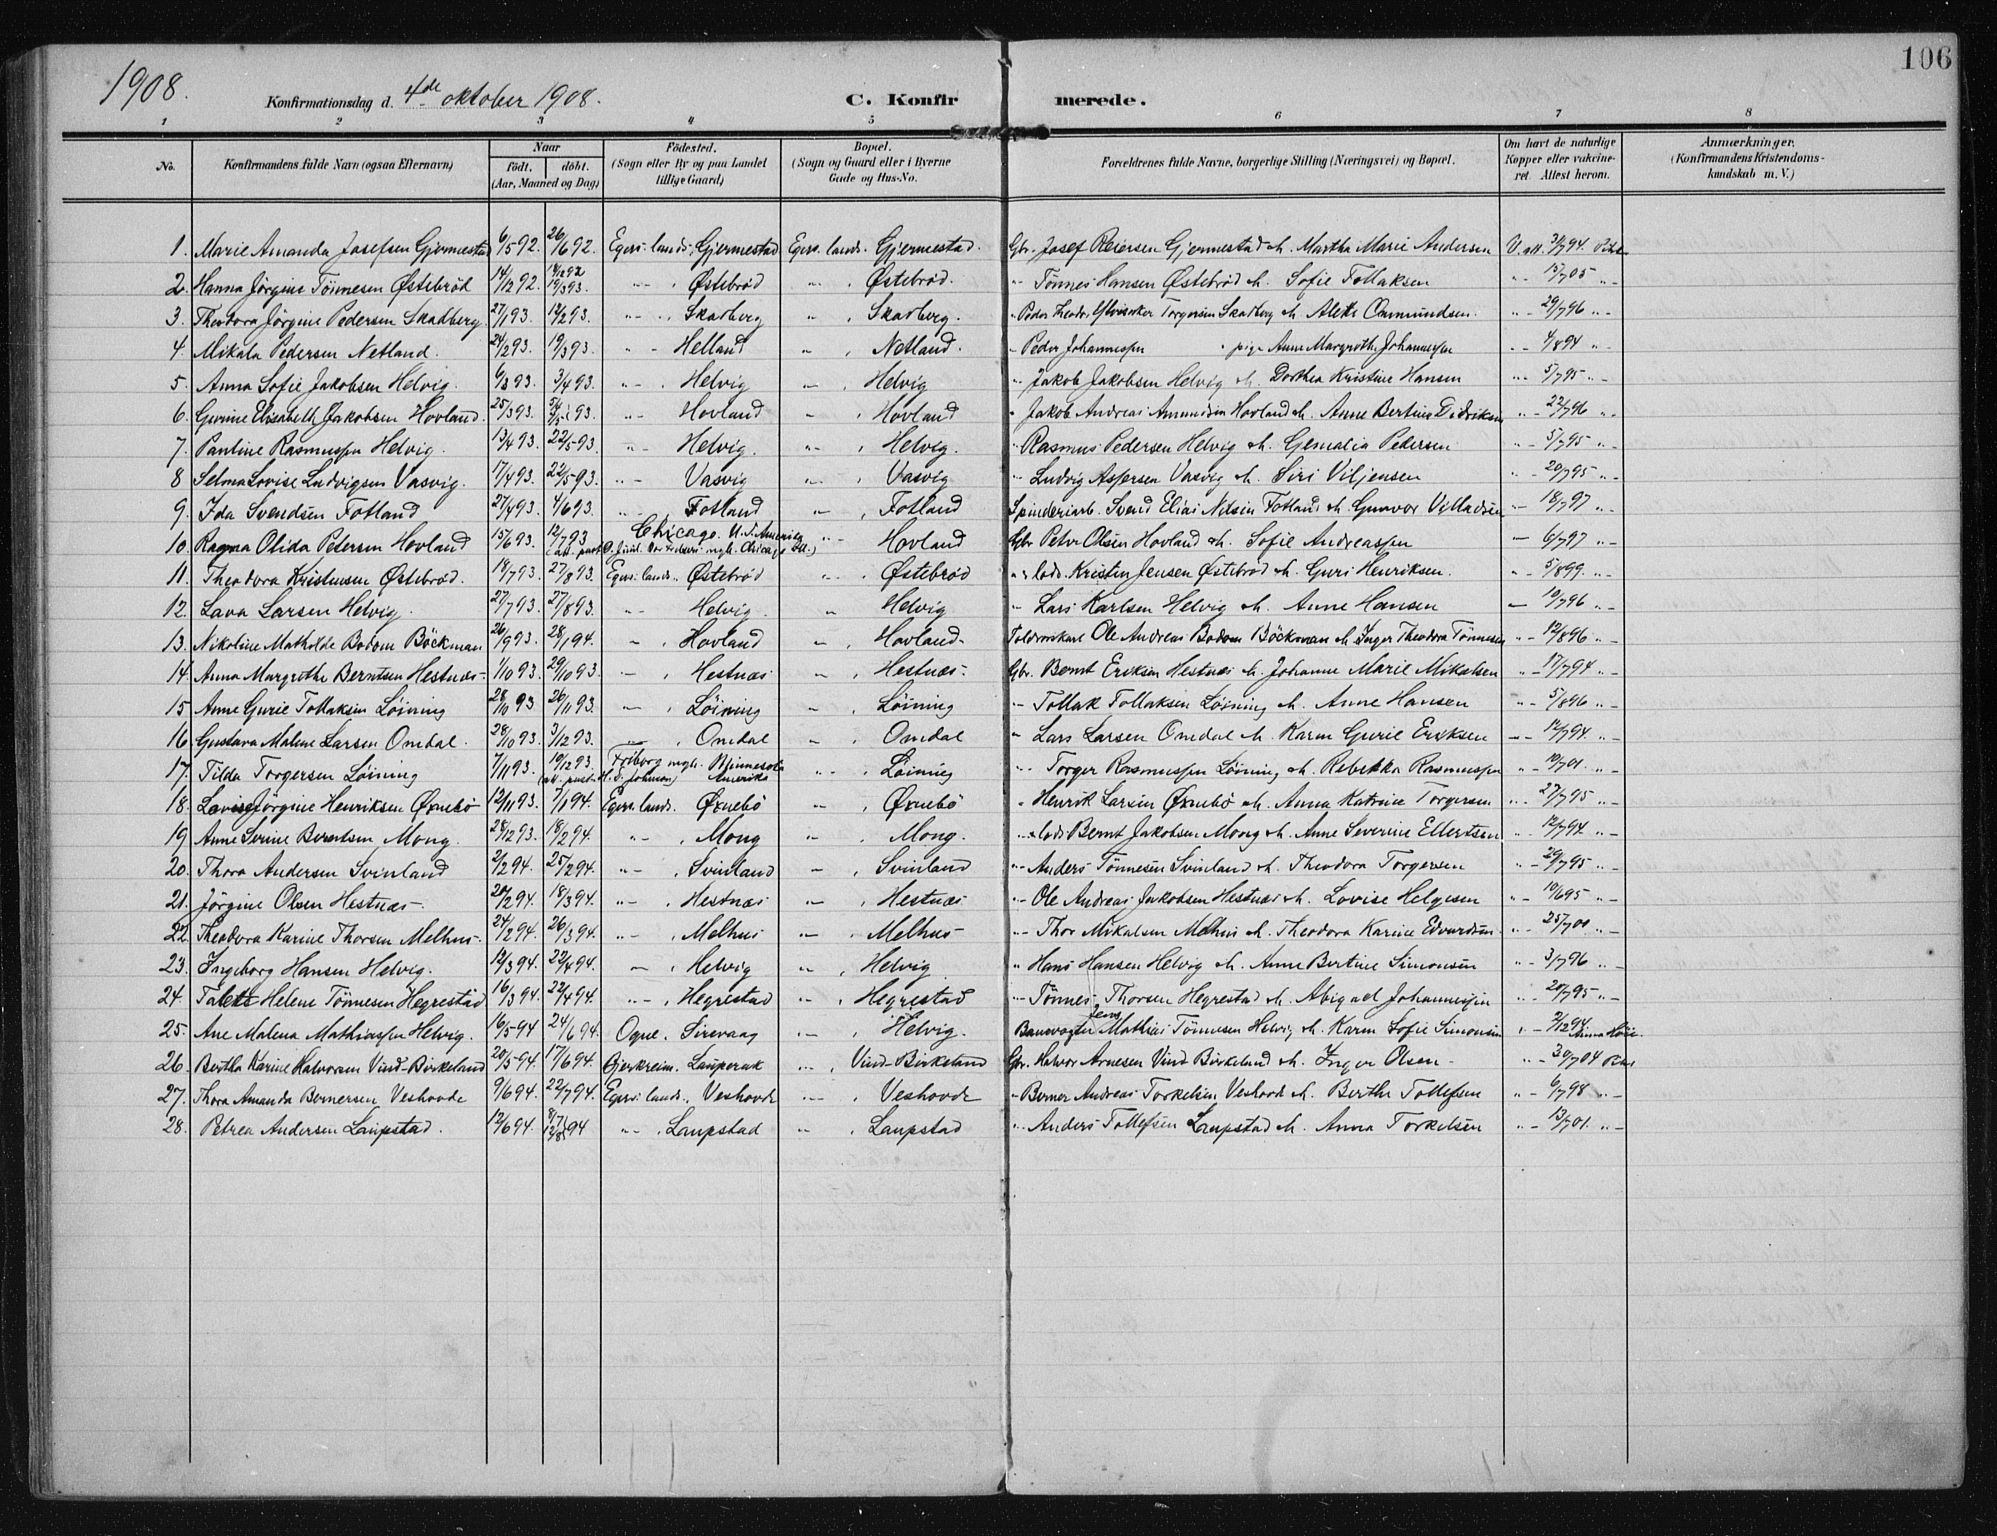 106
1908.
Konfirmationsdag d. 4de oktober 1908. C. Konfirmerede.
1 2 3 4 5 6 7 8
No. Konfirmandens fulde Navn (ogsaa Efternavn) Naar født. døbt. (Aar, Maaned og Dag) Fødested. (Sogn eller By og paa Landet tillige Gaard) Bopæl. (Sogn og Gaard eller i Byerne Gade og Hus-No. Forældrenes fulde Navne, borgerlige Stilling (Næringsvei) og Bopæl. Om havt de naturlige Kopper eller vakcineret. Attest herom. Anmærkninger. (Konfirmandens Kristendomskundskab m. V.)
1. Marie Amanda Josefsen Gjermestad 6/5 92. 26/6 92. Egers. lands. Gjermestad Egers. lands. Gjermestad. Gbr. Josef Reiersen Gjermestad & h. Martha Marie Andersen V. att. 31/7 94.
2. Hanna Jörgine Tönnesen Østebröd 14/12 92. 19/3 93. " " Østebröd " Østebröd. " Tönnes Hansen Østebröd & h. Sofie Tollaksen " 15/7 05 "
3. Theodora Jörgine Pedersen Skadberg. 27/1 93. 12/2 93. " " Skadberg " Skadberg. Torgersen Skadberg & h. Alette Omundsen. " 29/7 96 "
4. Mikala Pedersen Netland. 24/2 93. 19/3 93. " " Helland " Netland. " Peder Johannessen " pige Anne Margrethe Johannessen " 4/8 94 "
5. Anna Sofie Jakobsen Helvig. 6/3 93. 3/4 93. " " Helvig " Helvig " Jakob Jakobsen Helvig & h. Dorthea Kristine Hansen " 5/7 95 "
6. Gurine Elisabeth Jakobsen Hovland. 25/3 93. 93. " " Hovland " Hovland " Jakob Andreas Amundsen Hovland & h. Anne Bertine Didriksen " 22/7 96 "
7. Pauline Rasmussen Helvig. 13/4 93. 22/5 93. " " Helvig. " Helvig. " Rasmus Pedersen Helvig & h. Gemalia Pedersen " 5/7 95 "
8 Selma Lovise Ludvigsen Vasvig. 17/4 93. 22/5 93. " " Vasvig " Vasvig " Ludvig Assersen Vasvig & h. Siri Viljensen " 20/7 95 "
9. Ida Svendsen Fotland 27/4 93. 4/6 93. " " Fotland " Fotland Spinderiarb. Svend Elias Nilsen Fotland & h. Gunvor Villadsen " 18/7 97 "
10. Ragna Olida Pedersen Hovland 15/6 93. 12/7 93 Chicago. U.S. Amerika " Hovland Gbr Peter Olsen Hovland & h. Sofie Andreassen " 6/7 97 "
11. Theodora Kristensen Østebröd. 18/7 93. 27/8 93. Egers. lands. Østebröd " Østebröd Kristen Jensen Østebröd & h. Guri Henriksen. " 5/8 99. "
12. Lava Larsen Helvig. 27/7 93. 27/8 93. " " Helvig. " Helvig " Lars Karlsen Helvig & h. Anne Hansen " 19/7 96 "
13. Nikoline Mathilde Bodom Böckman 26/9 93. 28/1 94. " " Hovland " Hovland. Ole Andreas Bodom Böckman & h. Inger Theodora Tönnesen " 12/8 96 "
14. Anna Margrethe Berntsen Hestnæs. 1/10 93. 29/10 93. " " Hestnæs " Hestnæs. Gbr. Bernt Eriksen Hestnæs & h. Johanne Marie Mikalsen " 17/7 94 "
15 Anne Gurie Tollaksen Löining 28/10 93 26/11 93. " " Löining " Löining " Tollak Tollaksen Löining & h. Anne Hansen " 5/8 96 "
16. Gustava Malene Larsen Omdal. 28/10 93. 3/12 93. " " Omdal " Omdal " Lars Larsen Omdal & h. Karen Gurie Eriksen " 12/7 94. "
17. Tilda Torgersen Löining 7/11 93. 19/12 93 Minnesota Amerika " Löining " Torger Rasmussen Löining & h. Rebekka Rasmussen " 19/7 01. "
18. Lovise Jörgine Henriksen Øxnebö 12/11 93. 7/1 94. Egers. lands. Øxnebö " Øxnebö " Henrik Larsen Øxnebö & h. Anna Katrine Torgersen " 27/7 95 "
19 Anne Serine Berntsen Mong. 28/12 93. 18/2 94. " " Mong " Mong. Bernt Jakobsen Mong & h. Anne Severine Ellertsen " 12/7 94 "
20. Thora Andersen Svinland 2/2 94. 25/2 94. " " Svinland " Svinland " Anders Tönnesen Svinland & h. Theodora Torgersen " 29/7 95 "
21. Jörgine Olsen Hestnæs. 20/2 94. 18/3 94. " " Hestnæs " Hestnæs " Ole Andreas Jakobsen Hestnæs & h. Lovise Helgesen " 10/6 95 "
22. Theodora Karine Thorsen Melhus. 24/2 94. 26/3 94. " " Melhus " Melhus " Thor Mikalsen Melhus & h. Theodora Karine Edvardsen " 25/7 00 "
23. Ingeborg Hansen Helvig. 12/3 94. 22/4 94. " " Helvig " Helvig " Hans Hansen Helvig & h. Anne Bertine Simonsen " 3/7 96 "
24. Talette Helene Tönnesen Hegrestad 16/3 94. 22/4 94. " " Hegrestad " Hegrestad " Tönnes Thorsen Hegrestad & h. Abigael Johannessen " 20/7 95 "
25. Ane Malena Mathiassen Helvig. 16/5 94 24/6 94. Ogne. Sirevaag " Helvig. Banevogter Jens Mathias Tönnesen Helvig & h. Karen Sofie Simonsen " 2/12 94
26. Bertha Karine Halvorsen Vind-Birkeland 20/5 94. 17/6 94. Bjerkreim. Lauperak " Vind-Birkeland Gbr. Halvor Arnesen Vind Birkeland & h. Inger Olsen. " 30/7 04
27. Thora Amanda Bernersen Veshovde 9/6 94. 22/7 94. Egers. lands. Veshovde " Veshovde " Berner Andreas Torkelsen Veshovd & h. Berthe Tollefsen " 6/7 98 "
28. Petrea Andersen Laupstad. 12/6 94. 94 " " Laupstad " Laupstad " Anders Tollefsen Laupstad & h. Anna Torkelsen " 13/7 01. "